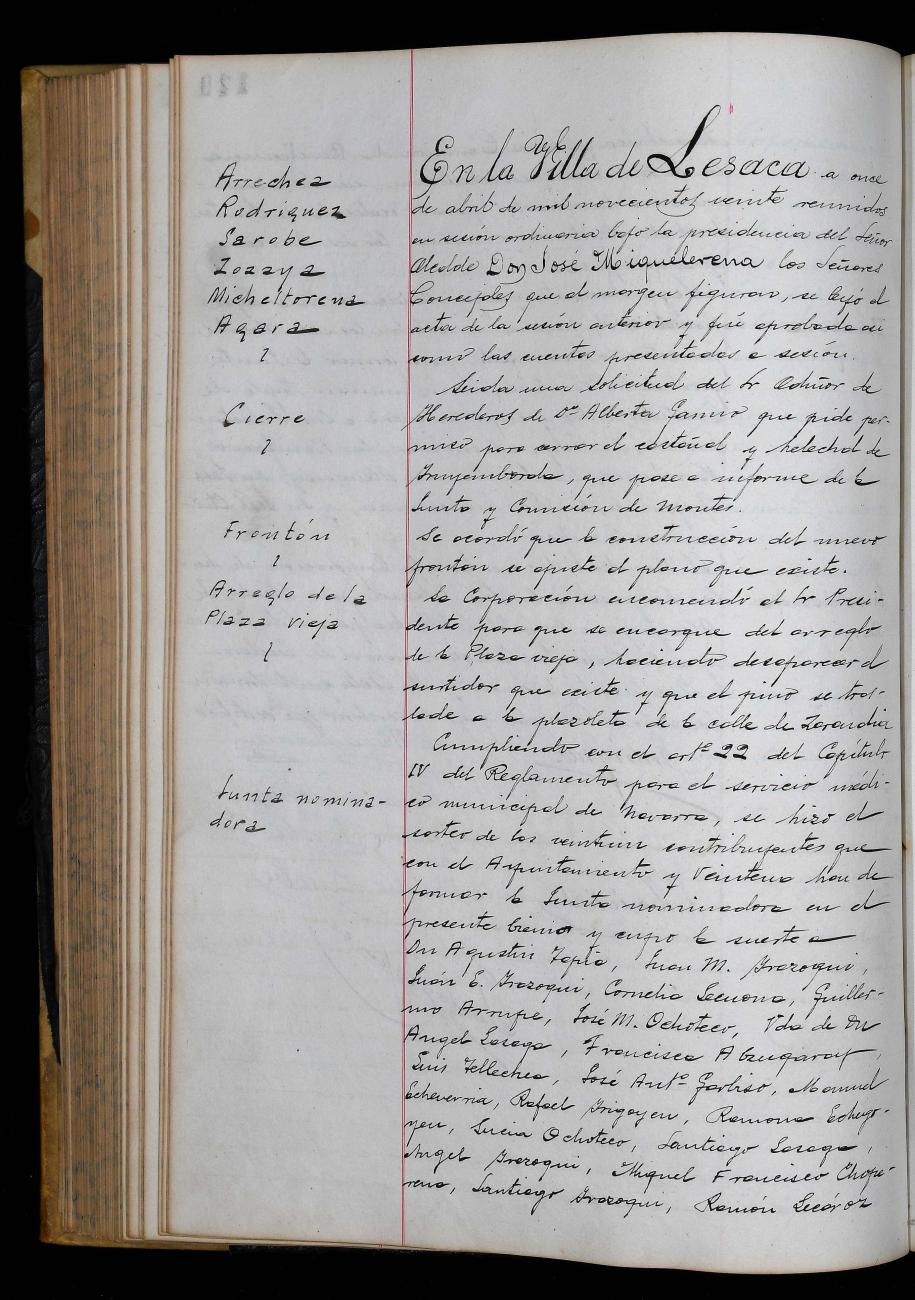 Arrechea
Rodriguez
Sarobe
Zozaya
Micheltorena
Agara
Cierre
Frontón
Arreglo de la
Plaza vieja
Junta nomina-
dora
En la Villa de Lesaca a once
de abril de mil novecientos veinte reunidos
en sesión ordinaria bajo la presidencia del Señor
Alcalde Don José Miquelerena los Señores
Concejales que al margen figuran, se leyó el
acta de la sesión anterior y fué aprobada asi
como las cuentas presentadas a sesión.
Leida una solicitud del Sr Admor de
Herederos de Dª Alberta Gamio que pide per-
miso para cerrar el castañal y helechal de
que pase a informe de la
Junta y Comisión de Montes.
Se acordó que la construcción del nuevo
frontón se ajuste al plano que existe.
La Corporación encomendó al Sr Presi-
dente para que se encargue del arreglo
de la Plaza vieja, haciendo desaparecer el
surtidor que existe y que el pino se tras-
lade a la plazoleta de la calle de Zarandia
Cumpliendo con el artº 22 del Capítulo
IV del Reglamento para el servicio médi-
co municipal de Navarra, se hizo el
sorteo de los veintiun contribuyentes que
con el Ayuntamiento y Veintena han de
formar la Junta nominadora en el
presente bienio y cupo la suerte a
Dn Agustin Tapia, Juan M. Irazoqui,
Juán E. Irazoqui, Cornelia Lecuona, Guiller-
mo Arrupe, José M. Ochoteco, Vda de Dn
Angel Sasaga, Francisca Abzugaray,
Luis Tellechea, José Antº Garbiso, Manuel
Echeverria, Rafael Irigoyen, Ramona Echego-
yen, Lucia Ochoteco, Santiago Sasaga,
Angel Irazoqui, Miguel Francisco Chope-
rena, Santiago Irazoqui, Ramón Lecároz